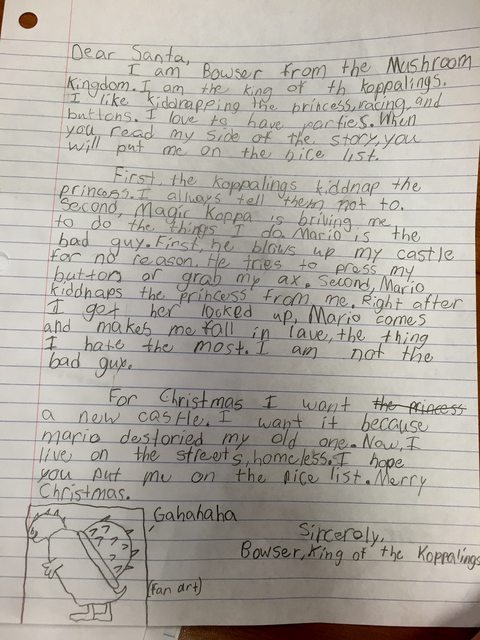 Dear Santa,
I am Bowser from the Mushroom
Kingdom. I am the king of th koppalings.
I like kiddnapping the princess, racing, and
buttons. I love to have parties. When
you read my side of the story, you
will put me on the nice list.
First, the koppalings kiddnap the
princess. I always tell them not to.
Second, Magic Koppa is briving me
to do the things I do. Mario is the
bad guy. First, he blows up my castle
for no reason. He tries to press my
button or grab my ax. Second, Mario
kiddnaps the princess from me. Right after
I got her locked up, Mario comes
and makes me fall in lava, the thing
I hate the most. I am not the
bad guy.
For Christmas I want the princess
a new castle. I want it because
mario destoried my old one. Now, I
live on the streets, homeless. I hope
you put me on the nice list. Merry
Christmas.
Gahahaha
Sincerely,
Bowser, King of the Koppalings
(fan art)